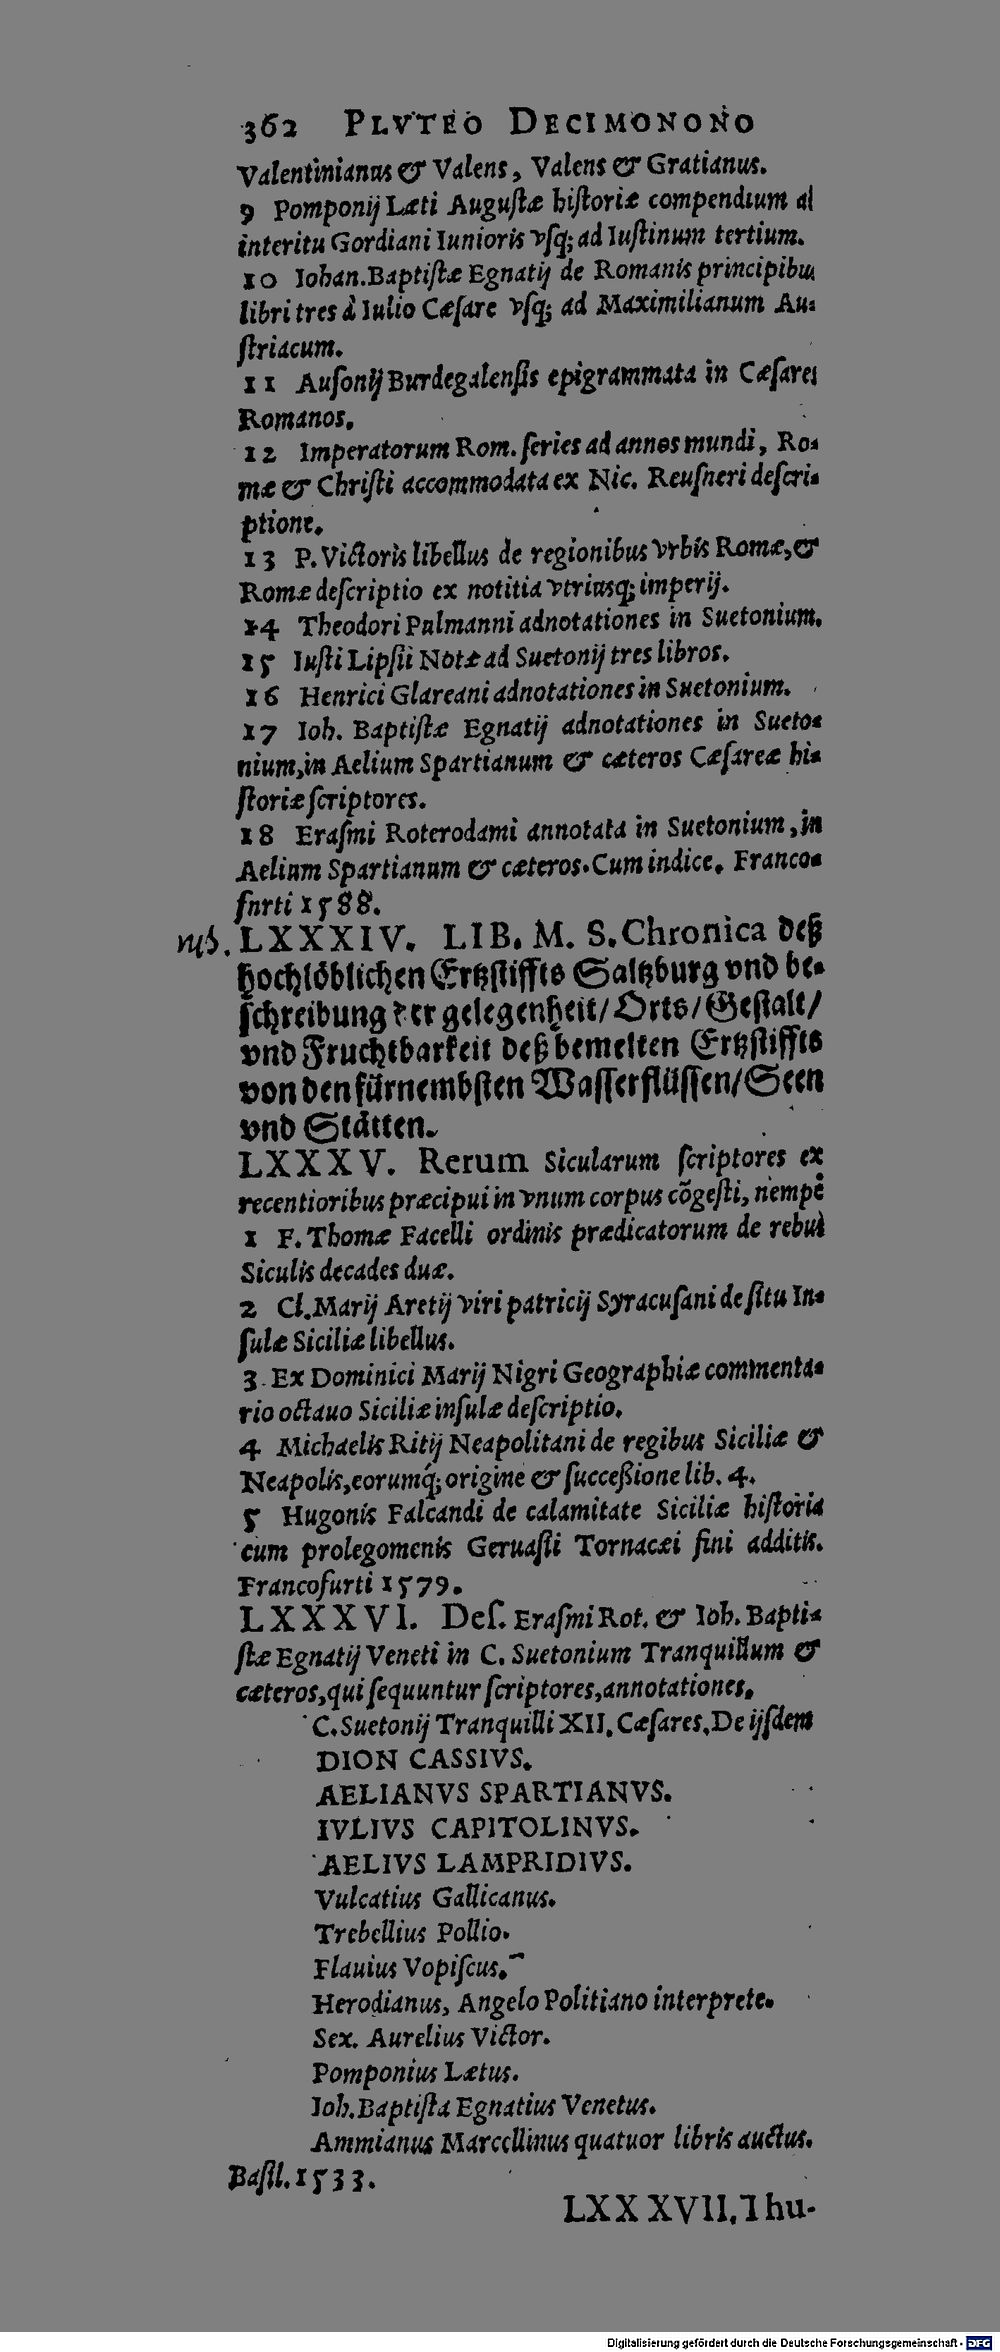 362 PLVTEO DECIMONONO
Valentinianus & Valens, Valens & Gratianus.
9 Pomponij Læti Augustæ historiæ compendium al
interitu Gordiani Iunioris vſq; ad Iuſtinum tertium.
10 Iohan. Baptiſtæ Egnatij de Romanis principibu
libri tres à Iulio Cæſare vſq; ad Maximilianum Au-
ſtriacum.
11 Auſonij Burdegalenſis epigrammata in Cæſares
Romanos.
12 Imperatorum Rom. ſeries ad annos mundi, Ro-
mæ & Chriſti accommodata ex Nic. Reuſneri deſcri-
ptione.
13 P. Victoris libellus de regionibus vrbis Romæ, &
Romæ deſcriptio ex notitia vtriusq; imperij.
14 Theodori Pulmanni adnotationes in Suetonium.
15 Iuſti Lipſii Notæ ad Suetonij tres libros.
16 Henrici Glareani adnotationes in Suetonium.
17 Ioh. Baptiſtæ Egnatij adnotationes in Sueto-
nium, in Aelium Spartianum & cæteros Cæſareæ hi-
ſtoriæ ſcriptores.
18 Eraſmi Roterodami annotata in Suetonium, in
Aelium Spartianum & cæteros. Cum indice. Franco-
furti 1588.
LXXXIV. LIB. M. S. Chronica deß
hochlöblichen Ertzſtiffts Saltzburg vnd be-
ſchreibung der gelegenheit/ Orts/ Geſtalt/
vnd Fruchtbarkeit deß bemelten Ertzſtiffts
von den fürnembſten Waſſerflüſſen/ Seen
vnd Stätten.
LXXXV. Rerum Sicularum ſcriptores ex
recentioribus præcipui in vnum corpus cōgeſti, nempe
1 F. Thomæ Facelli ordinis prædicatorum de rebus
Siculis decades duæ.
2 Cl. Marij Aretij viri patricij Syracuſani de ſitu In-
ſulæ Siciliæ libellus.
3 Ex Dominici Marij Nigri Geographiæ commenta-
rio octauo Siciliæ inſulæ deſcriptio.
4 Michaelis Ritij Neapolitani de regibus Siciliæ &
Neapolis, eorumq́; origine & ſucceßione lib. 4.
5 Hugonis Falcandi de calamitate Siciliæ hiſtoria
cum prolegomenis Geruaſii Tornacæi fini additis.
Francofurti 1579.
LXXXVI. Deſ. Eraſmi Rot. & Ioh. Bapti-
ſtæ Egnatij Veneti in C. Suetonium Tranquillum &
cæteros, qui ſequuntur ſcriptores, annotationes.
C. Suetonij Tranquilli XII. Cæſares. De ijſdem
DION CASSIVS.
AELIANVS SPARTIANVS.
IVLIVS CAPITOLINVS.
AELIVS LAMPRIDIVS.
Vulcatius Gallicanus.
Trebellius Pollio.
Flauius Vopiſcus.
Herodianus, Angelo Politiano interprete.
Sex. Aurelius Victor.
Pomponius Lætus.
Ioh. Baptiſta Egnatius Venetus.
Ammianus Marcellinus quatuor libris auctus.
Baſil. 1533.
LXXXVII. Thu-
Digitalisierung gefördert durch die Deutsche Forschungsgemeinschaft - DFG